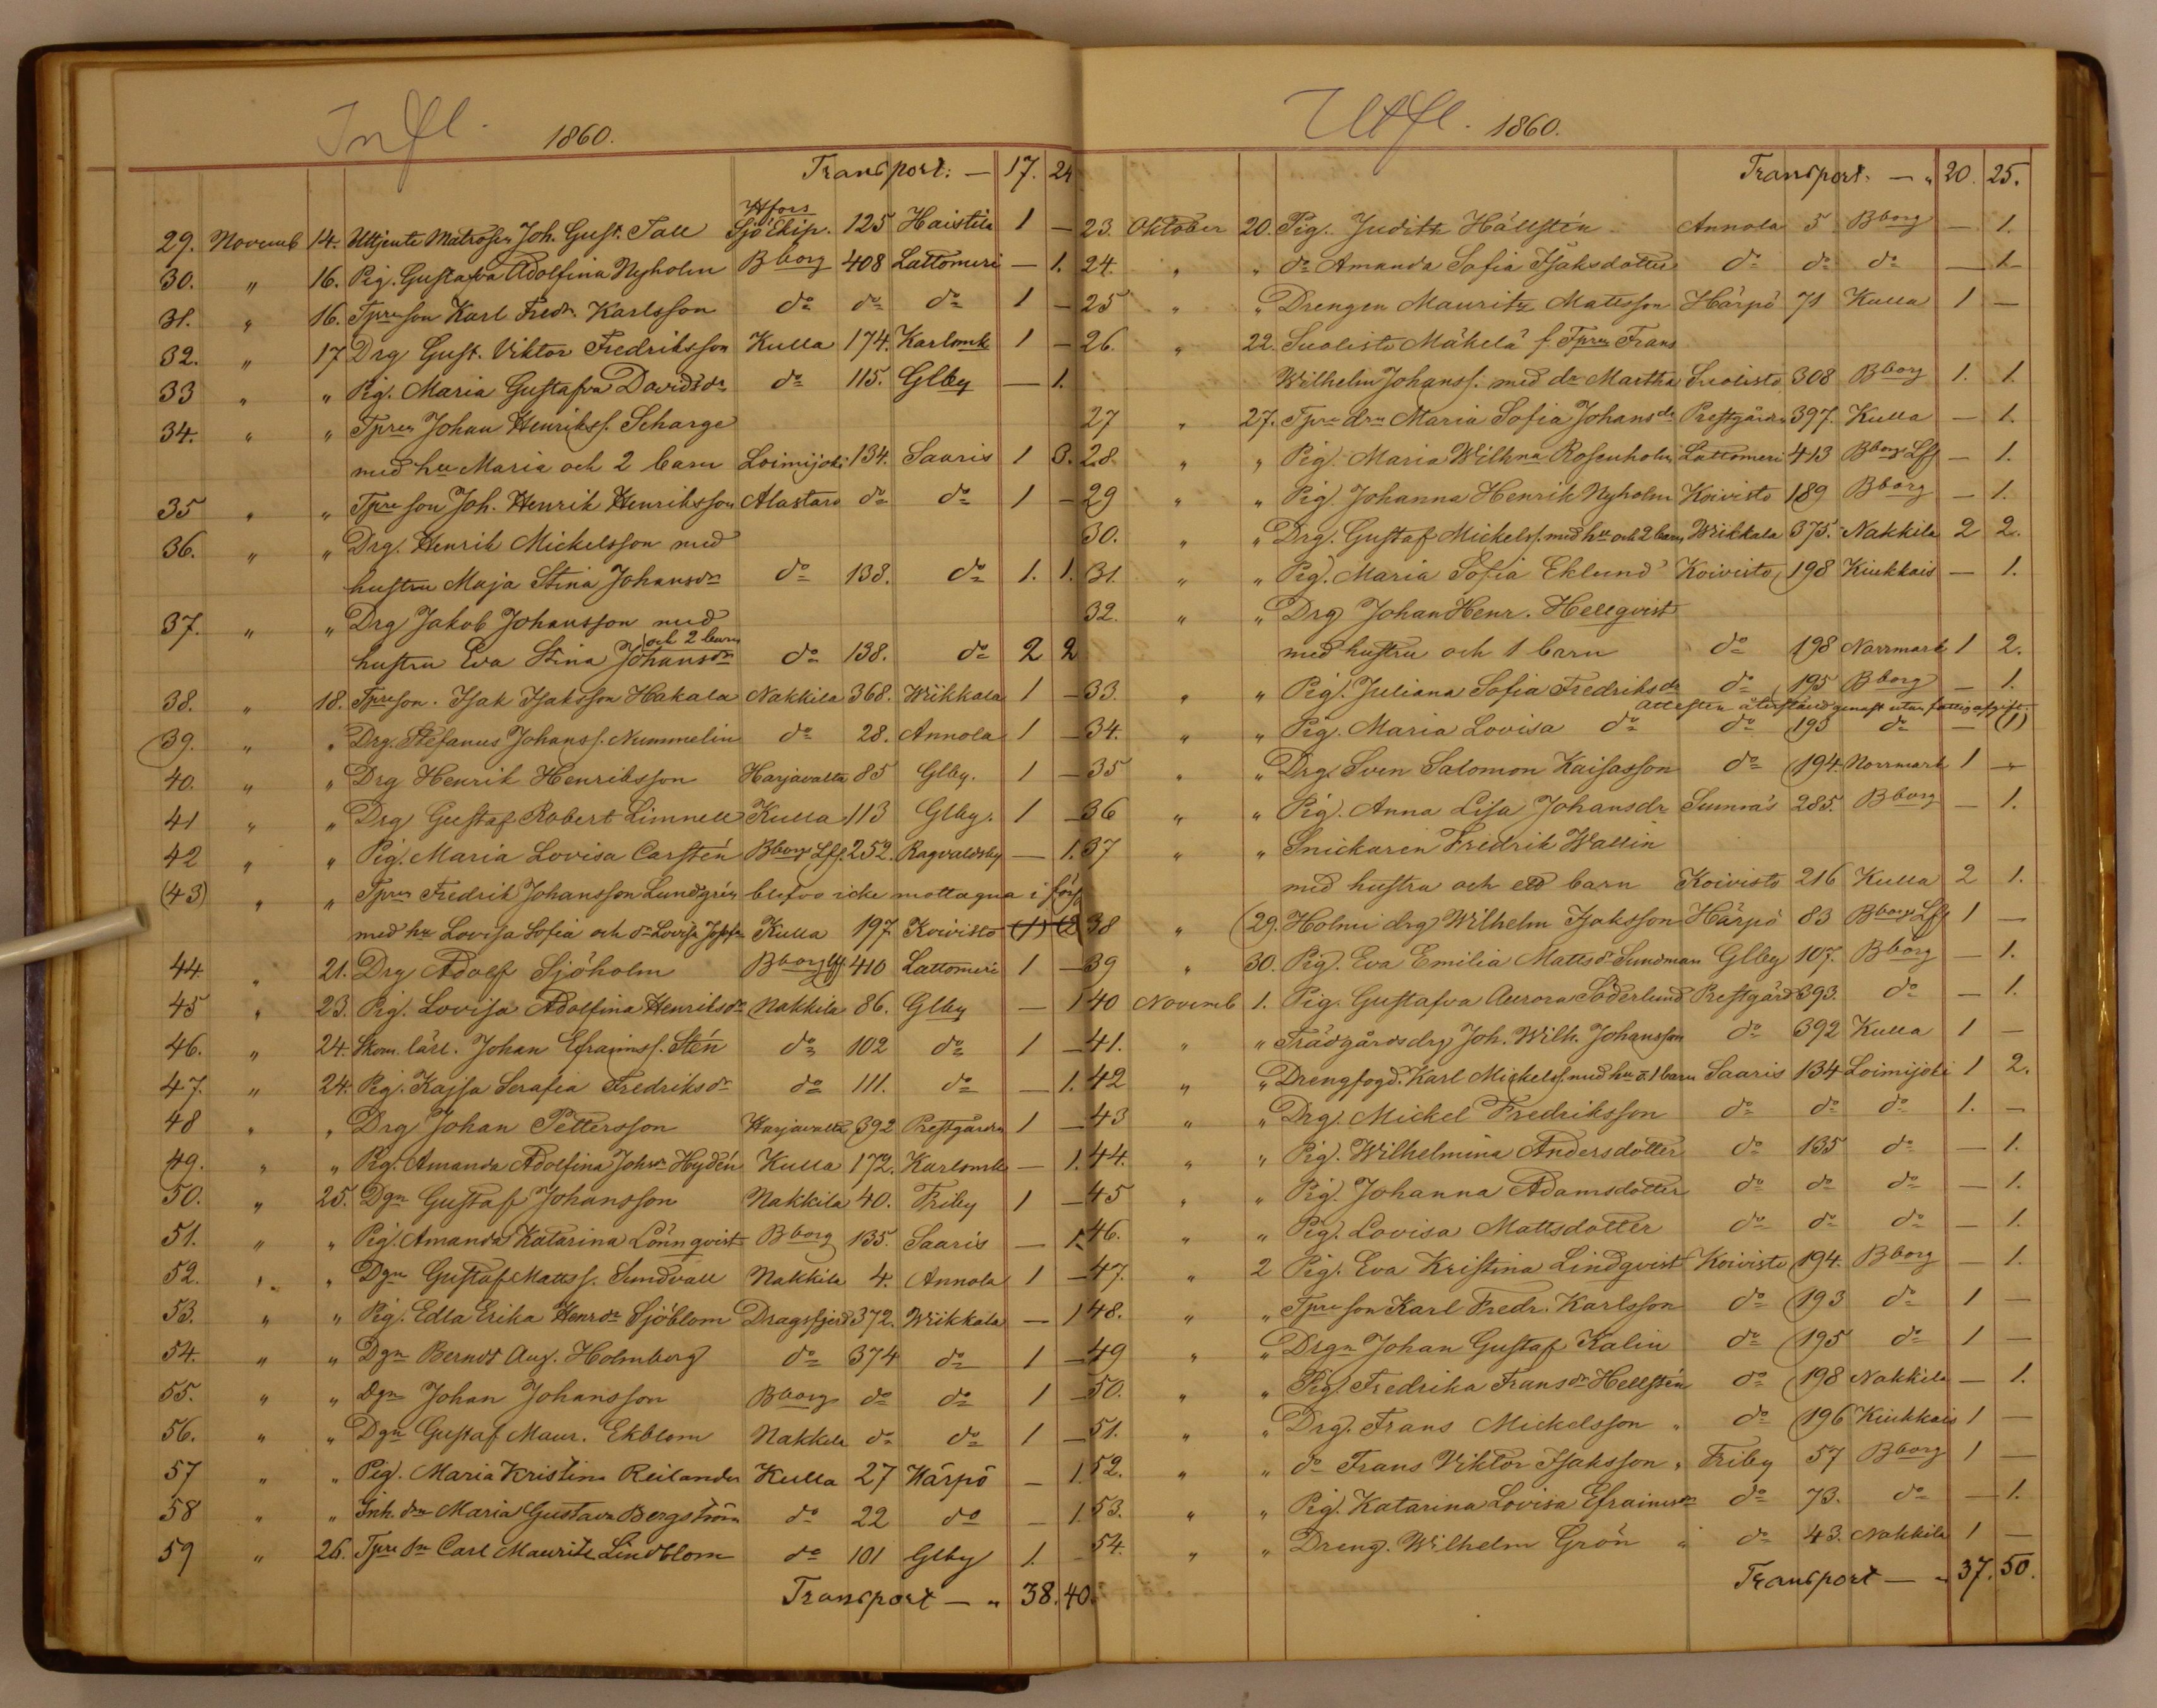 Infl.
1860.
Transport. — 17. 24
29. Novemb 14. Uttjente Matrosen Joh. Gust. Tall Hfors Sjö Ekip. 125 Haistila 1 —
30. " 16. Pig. Gustafva Adolfina Nyholm Bborg 408 Lattomeri — 1.
31. " 16. Tpre son Karl Fredr. Karlsson do do do 1 —
32. " 17 Drg Gust. Viktor Fredriksson Kulla 174. Karlsmk 1 —
33 " " Pig. Maria Gustafva Davidsdr do 115. Glby — 1.
34. " " Tpren Johan Henrikss. Scharge
med hu Maria och 2 barn Loimijoki 134. Saaris 1 3.
35 " " Tpre son Joh. Henrik Henriksson Alastaro do do 1 —
36. " " Drg. Henrik Mickelsson med
hustru Maja Stina Johansdr do 138. do 1. 1.
37. " " Drg Jakob Johansson med
hustru Eva Stina Johansdr och 2 barn do 138. do 2 2
38. " 18. Tpre son. Isak Isaksson Hakala Nakkila 368. Wiikkala 1 —
39. " " Drg. Stefanus Johanss. Nummelin do 28. Annola 1 —
40. " " Drg Henrik Henriksson Harjavalta 85 Glby. 1 —
41 " " Drg Gustaf Robert Limnell Kulla 113 Glby. 1 —
42 " " Pig. Maria Lovisa Carstén Bborgs Lff. 252. Ragvaldsby — 1.
(43) " " Tpren Fredrik Johansson Lundgrén blefvo icke mottagna i förs
med hu Lovisa Sofia och dr Lovisa Josefa Kulla 197 Koivisto (1) (2)
44. " 21. Drg Adolf Sjöholm Bborg Lff 410 Lattomeri 1 —
45 " 23. Pig. Lovisa Adolfina Henriksdr Nakkila 86. Glby — 1
46. " 24. Skom. lärl. Johan Efraimss. Stén do 102 do 1 —
47. " 24. Pig. Kajsa Serafia Fredriksdr do 111. do — 1.
48 " " Drg Johan Pettersson Harjavalta 392 Prestgården 1 —
49. " " Pig. Amanda Adolfina Johsdr Hydén Kulla 172. Karlsmk — 1.
50. " 25. Dgn Gustaf Johansson Nakkila 40. Friby 1 —
51. " " Pig. Amanda Katarina Lönnqvist Bborg 135. Saaris — 1.
52. " " Dgn Gustaf Mattss. Sundvall Nakkila 4. Annola 1 —
53. " " Pig. Edla Erika Henrdr Sjöblom Dragsfjerd 372. Wiikkala — 1
54. " " Dgn Berndt Aug. Holmberg do 374 do 1 —
55. " " Dgn Johan Johansson Bborg do do 1 —
56. " " Dgn Gustaf Maur. Ekblom Nakkila do do 1 —
57 " " Pig. Maria Kristina Reilander Kulla 27 Härpö — 1.
58 " " Inh. dtr Maria Gustava Bergström do 22 do — 1.
59 " 26. Tpre sn Carl Mauritz Lindblom do 101 Glby 1. —
Transport — " 38. 40.
Utfl.
1860.
Transport. — " 20. 25.
23. Oktober 20. Pig. Judith Hällstén Annola 5 Bborg — 1.
24. " " do Amanda Sofia Isaksdotter do do do — 1
25 " " Drengen Mauritz Mattsson Härpö 71 Kulla 1 —
26. " 22. Suolisto Mäkelä f. Tpren Frans
Wilhelm Johanss. med dr Martha Suolisto 308 Bborg 1. 1.
27 " 27. Tpre dtr Maria Sofia Johansdr Prestgården 397. Kulla — 1.
28. " " Pig. Maria Wilhna Rosenholm Lattomeri 413 Bborgs Lff — 1.
29 " " Pig. Johanna Henrik Nyholm Koivisto 189 Bborg — 1.
30. " " Drg. Gustaf Mickelss. med hu och 2 barn Wiikkala 375. Nakkila 2 2.
31. " " Pig. Maria Sofia Eklund Koivisto 198 Kiukkais — 1.
32. " " Drg Johan Henr. Hellqvist
med hustru och 1 barn do 198 Norrmark 1 2.
33. " " Pig. Juliana Sofia Fredriksdr do 195 Bborg — 1.
attesten återstäld genast utan fattigafgift.
34. " " Pig. Maria Lovisa do do 193 do — (1)
35 " " Drg Sven Salomon Kaisasson do 194. Norrmark 1 —
36 " " Pig. Anna Lisa Johansdr Sunnäs 285. Bborg — 1.
37 " " Snickaren Fredrik Wallin
med hustru och ett barn Koivisto 216 Kulla 2 1.
38 " 29. Holmi drg Wilhelm Isaksson Härpö 83 Bborgs Lff 1 —
39 " 30. Pig. Eva Emilia Mattsdr Sundman Glby 107. Bborg — 1.
40 Novemb 1. Pig. Gustafva Aurora Söderlund Prestgård 393. do — 1.
41. " " Trädgårdsdrg Joh. Wilh. Johansson do 392 Kulla 1 —
42 " " Drengfogd. Karl Mickelss. med hu o. 1 barn Saaris 134 Loimijoki 1 2.
43 " " Drg. Mickel Fredriksson do do do 1. —
44. " " Pig. Wilhelmina Andersdotter do 135 do — 1.
45 " " Pig. Johanna Adamsdotter do do do — 1.
46. " " Pig. Lovisa Mattsdotter do do do — 1.
47. " 2 Pig. Eva Kristina Lindqvist Koivisto 194. Bborg — 1.
48. " " Tpre son Karl Fredr. Karlsson do 193 do 1 —
49 " " Drgn Johan Gustaf Kalin do 195 do 1 —
50. " " Pig. Fredrika Fransdr Hellstén do 198 Nakkila — 1.
51. " " Drg. Frans Mickelsson " do 196 Kiukkais 1 —
52. " " do Frans Viktor Isaksson " Friby 57 Bborg 1 —
53. " " Pig. Katarina Lovisa Efraimsdr do 73. do — 1.
54. " " Dreng. Wilhelm Grön " do 43. Nakkila 1 —
Transport — " 37. 50.